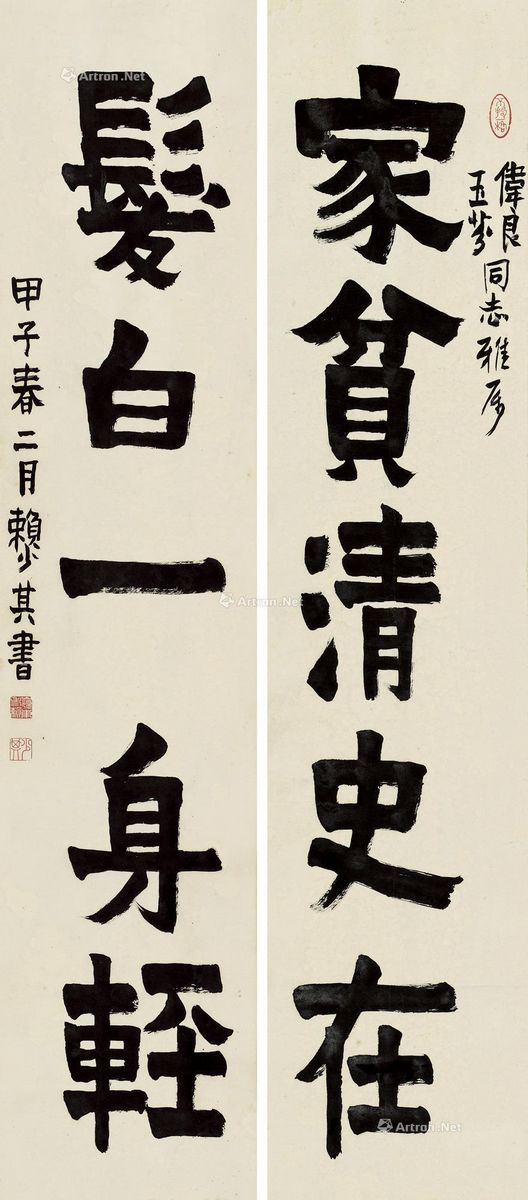 家貧清史在
偉良
玉芬同志雅属
髮白一身輕
甲子春二月賴少其書
Artron.Net
Artron.Net
Artron.Net